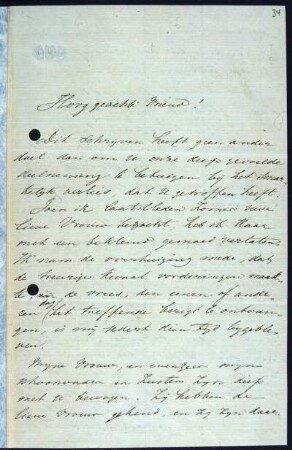 34
Hooggeachte Vriend!
Dit schrijven heeft geen ander
doel dan om U onze diep gevoelde
deelneming te betuigen bij het smar-
telijk verlies dat U getroffen heeft.
Toen ik laatstleden Zomer Uwe
lieve Vrouw bezocht, heb ik Haar
met een beklemd gemoed verlaten.
Ik nam de overtuiging mede, dat
de treurige kwaal vorderingen maak-
te; de vrees, den eenen of ande-
ren dag het treffende berigt te ontvan-
gen, is mij sedert dien tyd bygeble-
ven.
Myne Vrouw, en evenzeer myn
schoonvader en Zusters zyn diep
met U bewogen. Zy hebben de
lieve Vrouw gekend, en zy zyn daar-